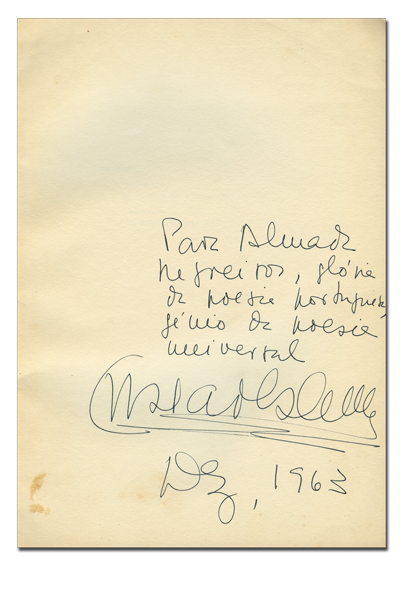 Para Almada
Negreiros, glória
da poesia portuguesa,
génio da poesia
universal
Dez, 1963